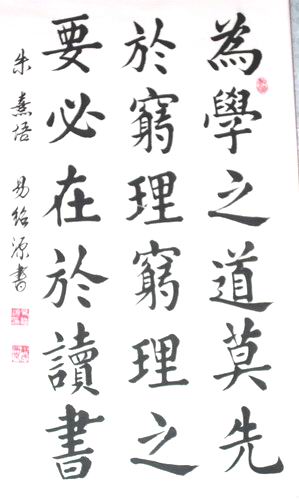 為學之道莫先
於窮理窮理之
要必在於讀書
朱熹語 易紹源書